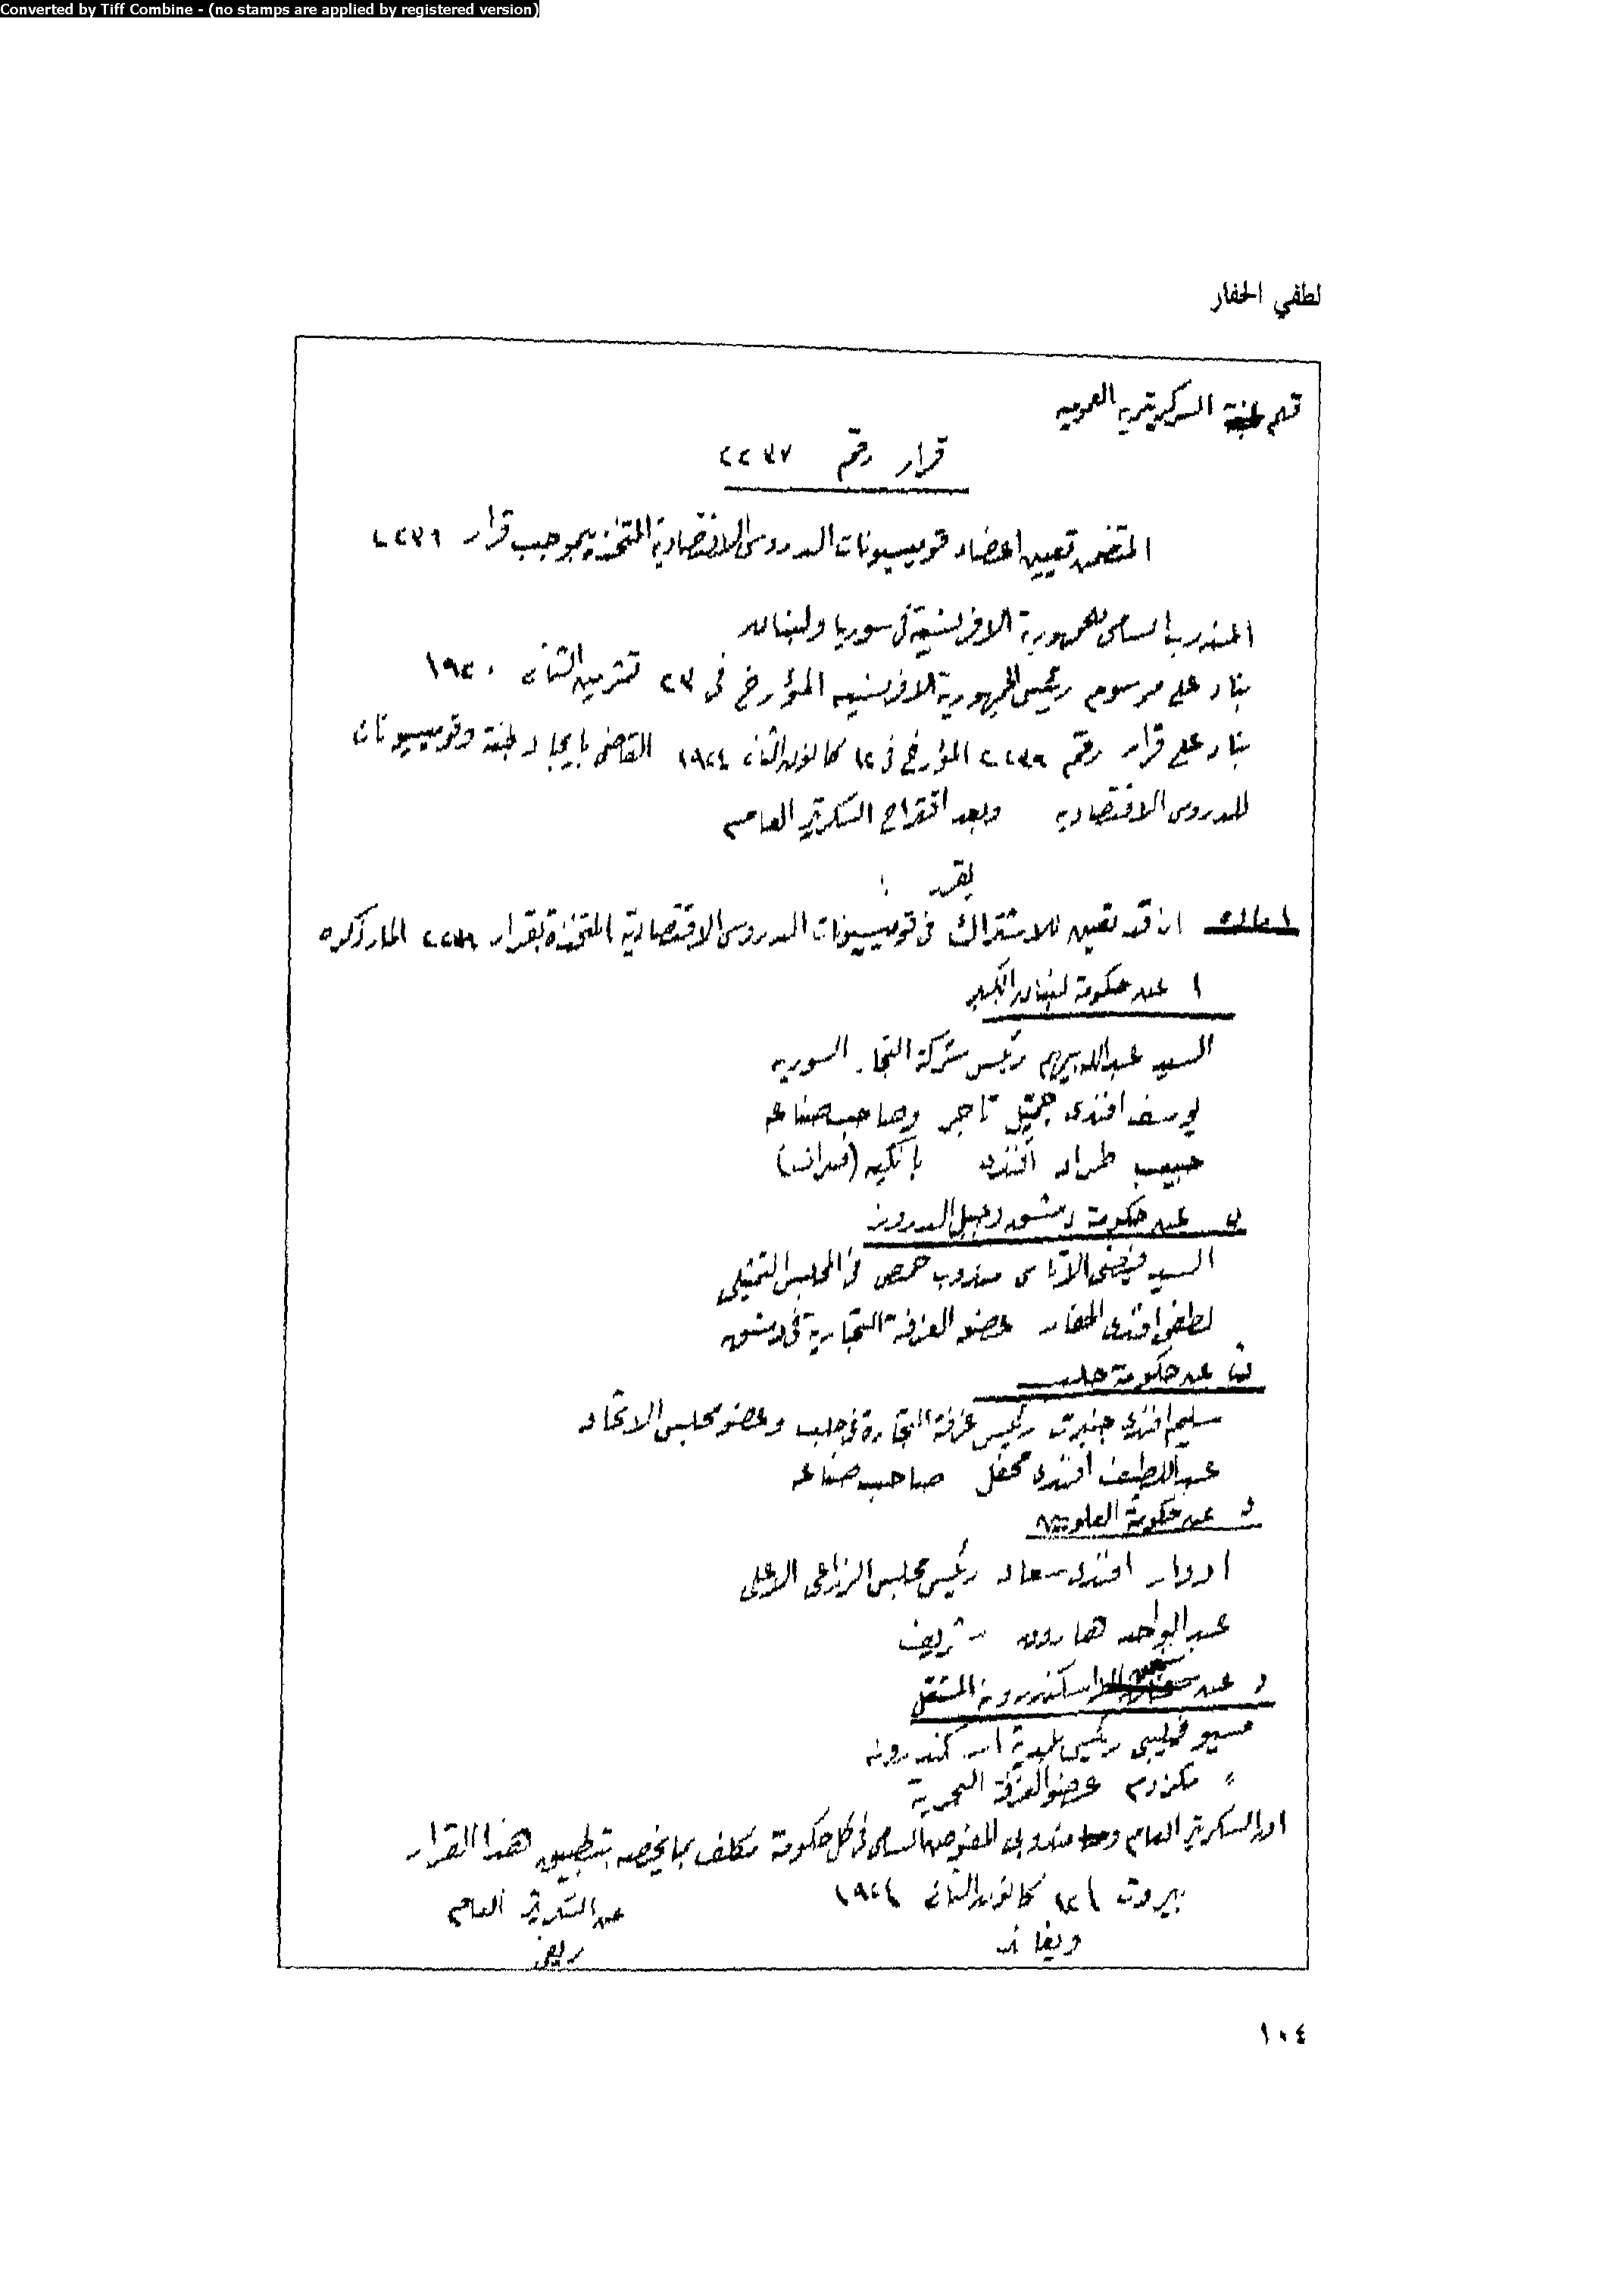 Converted by Tiff Combine - (no stamps are applied by registered version)
لطفي الحفار
قلم السكرتيرية العمومية
قرار رقم ٢٢٣٧
المتضمن تعيين اعضاء قوميسيونات الدروس الاقتصادية المتخذة بموجب قرار ٢٢٣٦
المندوب السامى للجمهورية الافرنسية فى سوريا ولبنان
بناء على مرسوم رئيس الجمهورية الافرنسية المؤرخ فى ٢٣ تشرين الثانى ١٩٢٠
بناء على قرار رقم ٢٢٣٦ المؤرخ فى ١٢ كانون الثانى ١٩٢٤ القاضى بايجاد لجنة وقوميسيونات
للدروس الاقتصادية وبعد اقتراح السكرتير العام
يقرر :
ان قد تعين للاشتراك فى قوميسيونات الدروس الاقتصادية المتخذة بقرار ٢٢٣٦ المار ذكره
ا عن حكومة لبنان الكبير
السيد عبدالله بيهم رئيس شركة التجار السورية
يوسف افندى جميل تاجر وصاحب صناعة
حبيب طراد افندى بانكيه (صراف)
ب عن حكومة دمشق وجبل الدروز
السيد فيضى الاتاسى مندوب حمص فى المجلس التمثيلى
لطفى افندى الحفار عضو الغرفة التجارية فى دمشق
ت عن حكومة حلب
سليم افندى جنبرت رئيس غرفة التجارة فى حلب وعضو مجلس الاتحاد
عبداللطيف افندى صاحب صناعة
عن حكومة العلويين
ادوار افندى سعاده رئيس مجلس الزراعى الاعلى
عبدالواحد هارون شريف
عن سنجق اسكندرونة المستقل
مسيو رئيس بلدية اسكندرونة
〃 عضو الغرفة
ان السكرتير العام ومندوبى المفوض السامى فى كل حكومة مكلف بما يخصه بتطبيق هذا القرار
بيروت ١٢ كانون الثانى ١٩٢٤ عن السكرتير العام
ويغاند
١٠٤